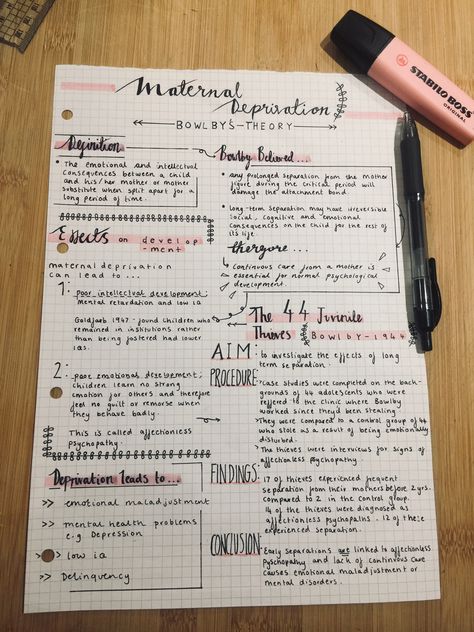 Maternal
Deprivation
BOWLBY'S-THEORY
Definition
• The emotional and intellectual
consequences between a child
and his/her mother or mother
substitute when split apart for a
long period of time.
Bowlby Believed...
• any prolonged separation from the mother
figure during the critical period will
damage the attachment bond.
• long-term separation may have irreversible
social, cognitive and emotional
consequences on the child for the rest of
its life.
therefore...
Continuous care from a mother is
essential for normal psychological
development.
Effects on develop
-ment
maternal deprivation
can lead to...
1: poor intellectual development;
mental retardation and low iq.
Goldfarb 1947 - found children who
remained in institutions rather
than being fostered had lower
iqs.
2: poor emotional development;
children learn no strong
emotion for others and therefore
feel no guilt or remorse when
they behave badly.
This is called affectionless
psychopathy.
Deprivation leads to...
>> emotional maladjustment
>> mental health problems
e.g. Depression
>> low iq
>> Delinquency
The 44 Juvenile
Thieves BOWLBY-1944
AIM: to investigate the effects of long
term separation.
PROCEDURE:
• case studies were completed on the back-
grounds of 44 adolescents who were
referred to the clinic where Bowlby
worked since they'd been stealing.
• They were compared to a control group of 44
who stole as a result of being emotionally
disturbed.
• The thieves were interviews for signs of
affectionless psychopathy.
FINDINGS: 17 of thieves experienced frequent
separation from their mothers before 2 yrs.
compared to 2 in the control group.
14 of the thieves were diagnosed as
affectionless psychopaths. 12 of these
experienced separation.
CONCLUSION: Early separations are linked to affectionless
psychopathy and lack of continuous care
causes emotional maladjustment or
mental disorders.
STABILO BOSS
ORIGINAL